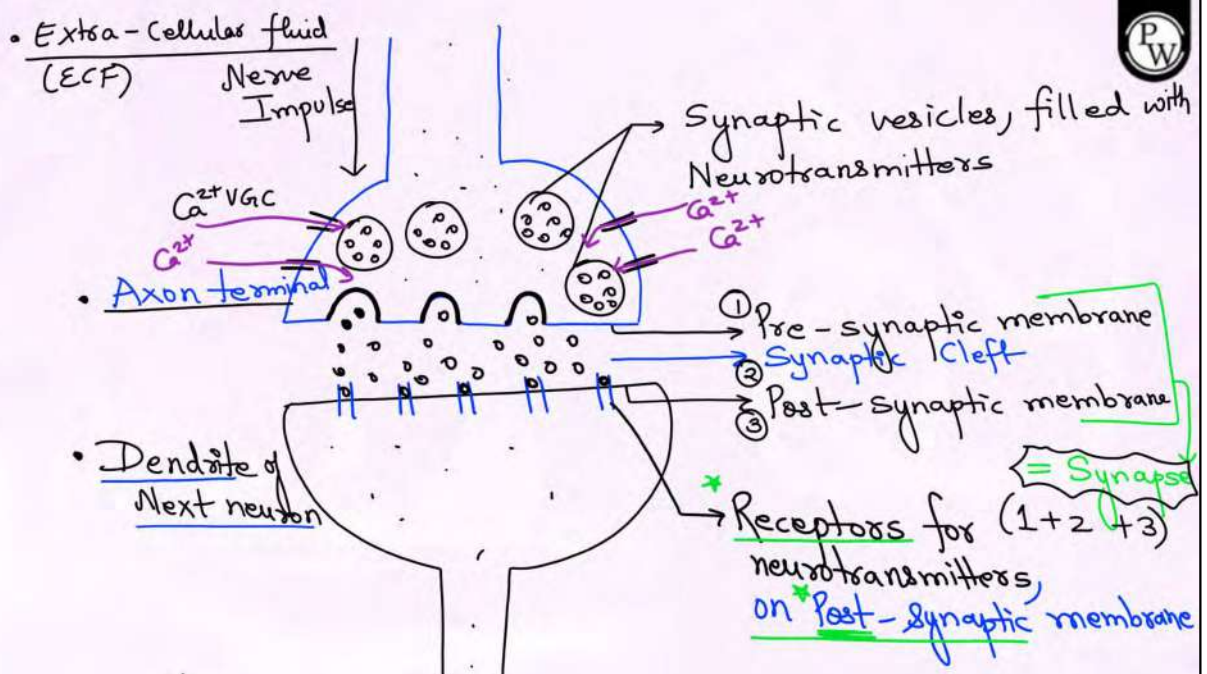 • Extra-Cellular fluid
(ECF)
Nerve
Impulse
PW
Synaptic vesicles, filled with
Neurotransmitters
Ca²⁺ VGC
Ca²⁺
Ca²⁺
Ca²⁺
• Axon terminal
① Pre-synaptic membrane
② Synaptic Cleft
③ Post-synaptic membrane
= Synapse
(1+2+3)
• Dendrite of
Next neuron
* Receptors for
neurotransmitters,
on *Post-synaptic membrane